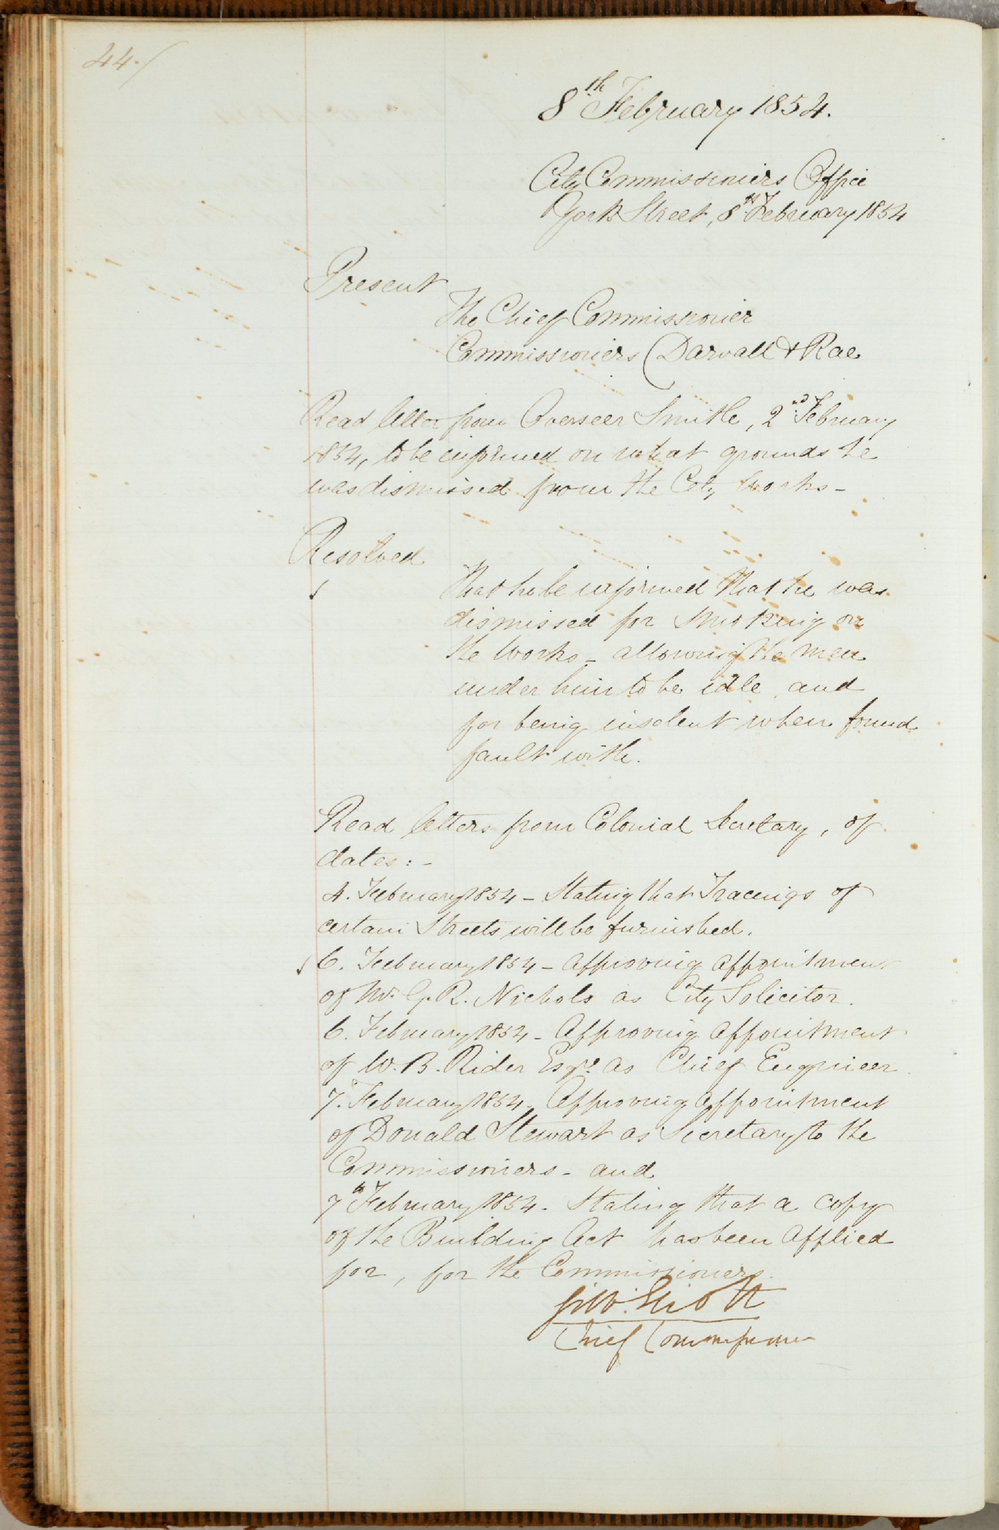 44./
8th February 1854.
City Commissioners Office
York Street, 8th February 1854
Present
The Chief Commissioner
Commissioners Darvall & Rae
Read letter from Overseer Smith, 2nd February
1854, to be informed on what grounds he
was dismissed from the City Works -
Resolved
That he be informed that he was
dismissed for smoking on
the Works - allowing the men
under him to be idle and
for being insolent when found
fault with.
Read letters from Colonial Secretary, of
dates: -
4. February 1854 - Stating that Tracings of
certain Streets will be furnished.
6. February 1854 - approving appointment
of Mr. G. R. Nichols as City Solicitor.
6. February 1854 - Approving appointment
of W. B. Rider Esqre. as Chief Engineer.
7. February 1854 - Approving appointment
of Donald Stewart as Secretary to the
Commissioners - and
7th February 1854 - Stating that a copy
of the Building Act has been applied
for, for the Commissioners.
Chief Commissioner